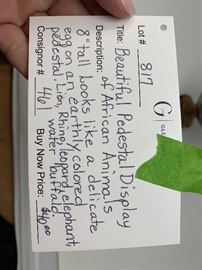 Lot # 817
Title: Beautiful Pedestal Display
of African Animals
Description:
8" tall Looks like a delicate
egg on an earthly colored
pedestal. Lion, Rhino, leopard, elephant,
water buffalo
Consignor # 461 Buy Now Price: $40.00